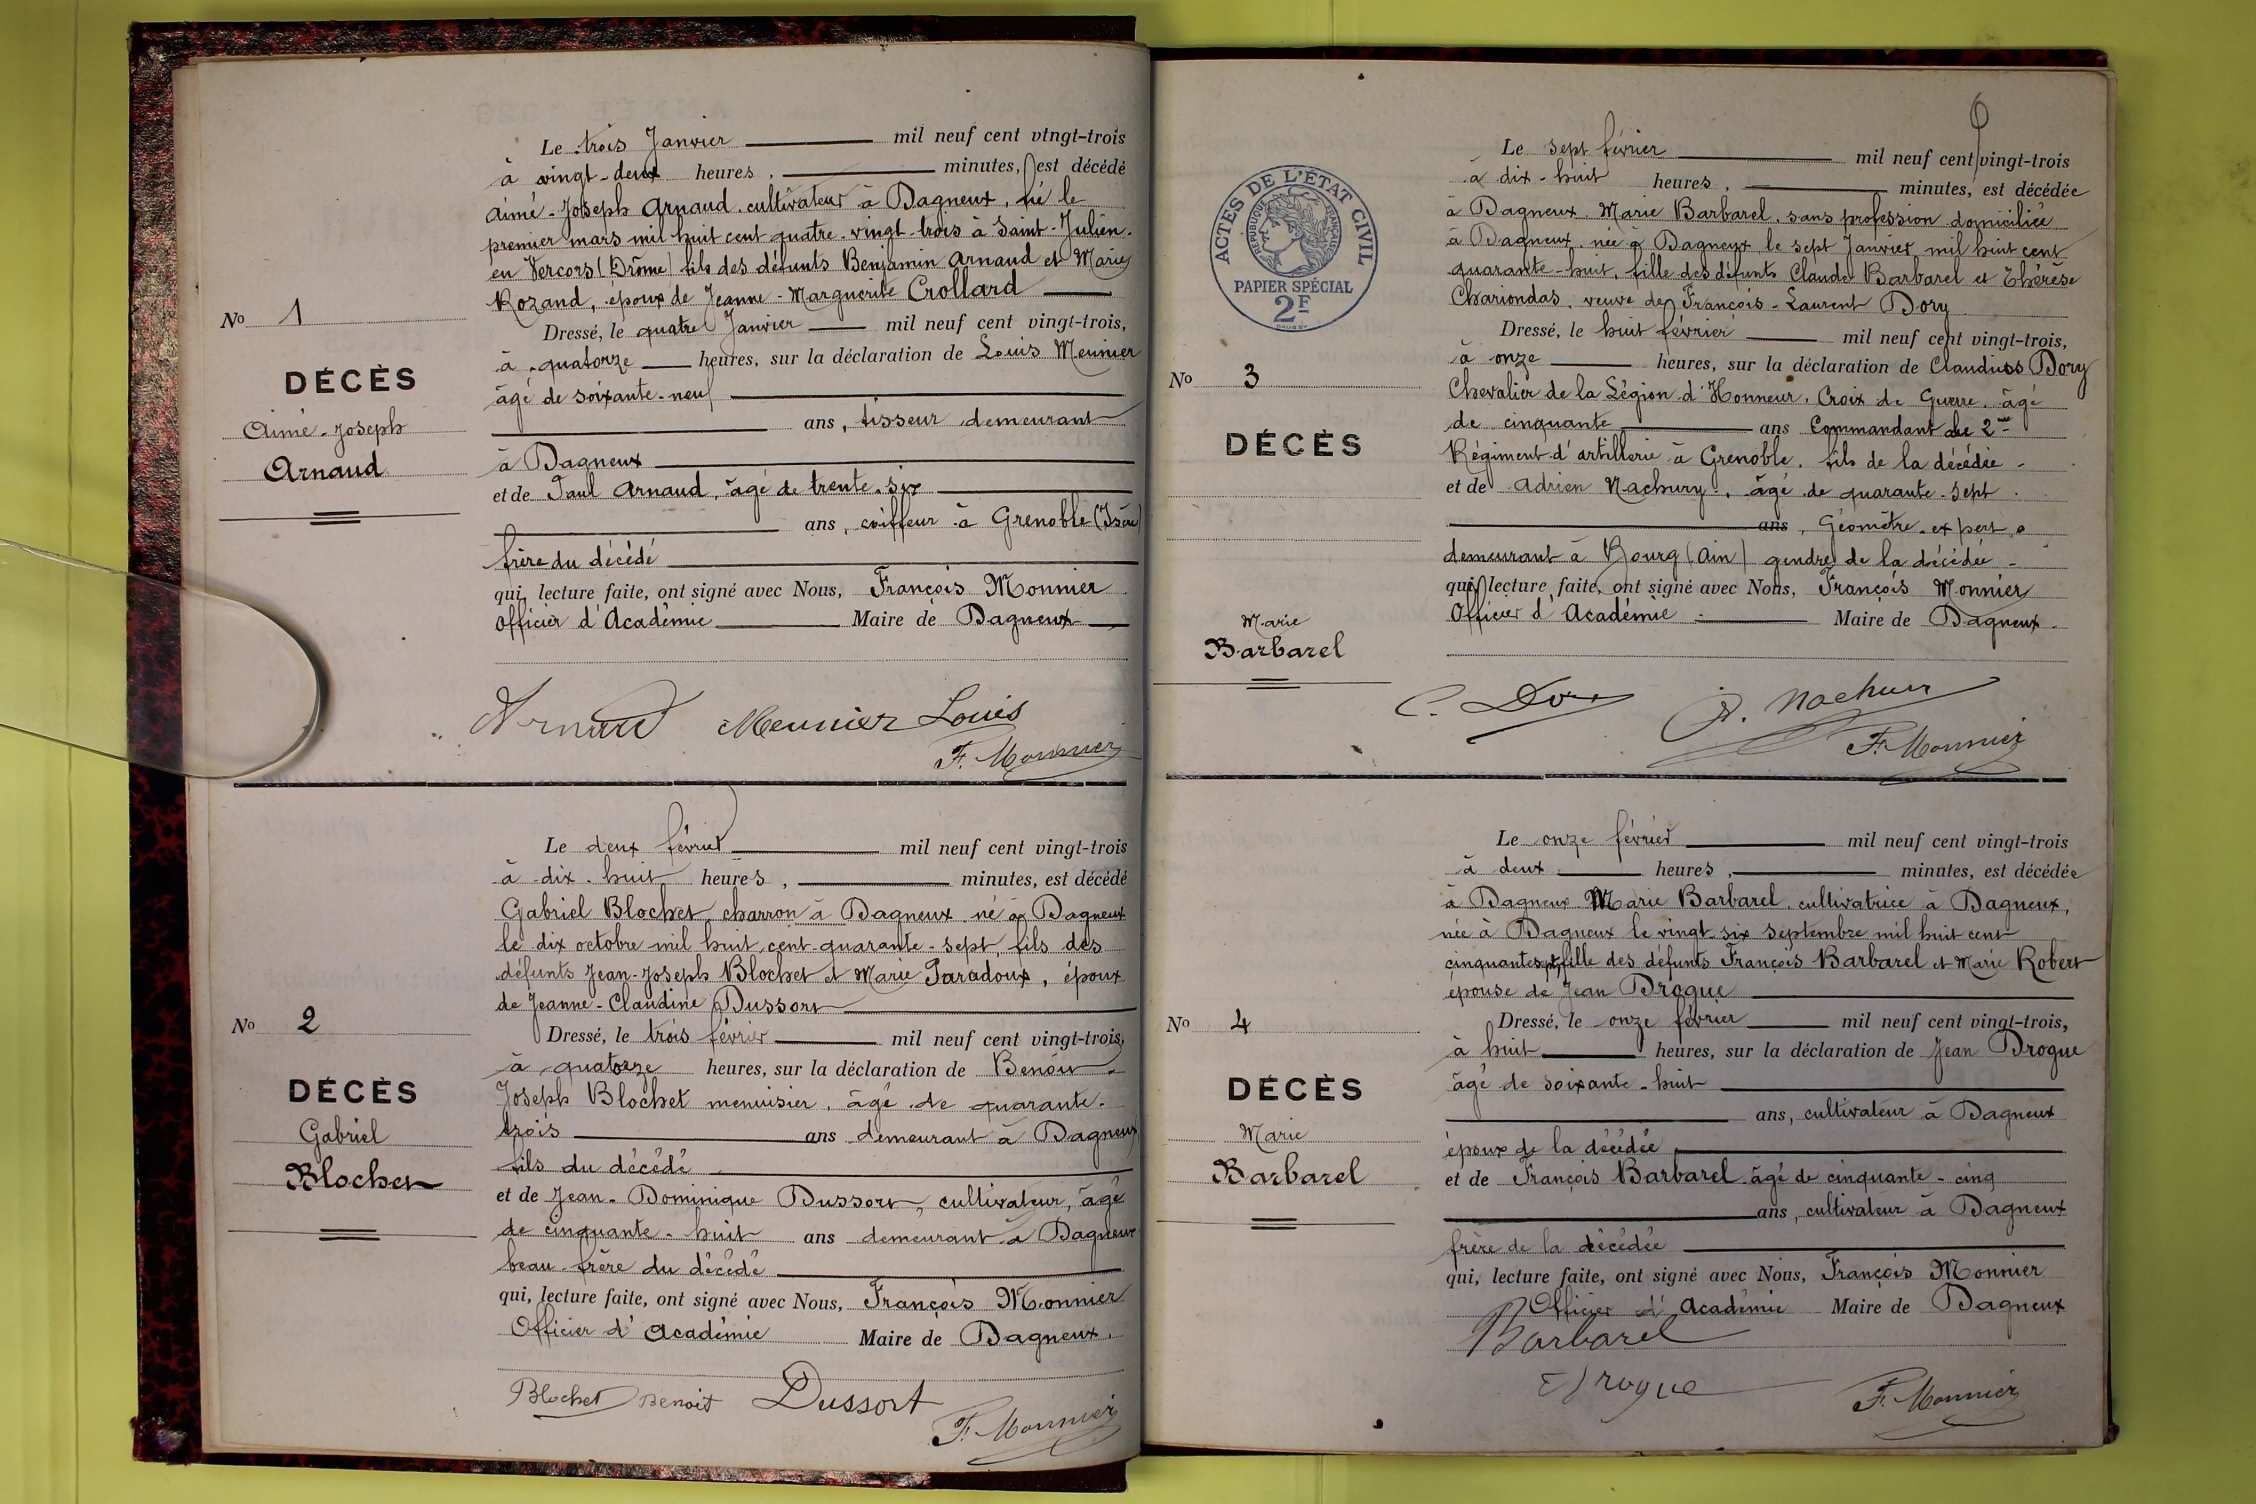 Le trois Janvier mil neuf cent vingt-trois
à vingt-deux heures, minutes, est décédé
Aimé-Joseph Arnaud, cultivateur à Dagneux, né le
premier mars mil huit cent quatre-vingt-trois à Saint-Julien-
en Vercors (Drôme) fils des défunts Benjamin Arnaud et Marie
Rozand, époux de Jeanne-Marguerite Crollard
No 1
Dressé, le quatre Janvier mil neuf cent vingt-trois,
à quatorze heures, sur la déclaration de Louis Meunier
DÉCÈS
âgé de soixante-neuf
Aimé-Joseph
ans, tisseur demeurant
Arnaud
à Dagneux
et de Paul Arnaud, âgé de trente-six
ans, coiffeur à Grenoble (Isère)
frère du décédé
qui, lecture faite, ont signé avec Nous, François Monnier
Officier d'Académie Maire de Dagneux
Arnaud Meunier Louis
F. Monnier
Le deux février mil neuf cent vingt-trois
à dix-huit heures, minutes, est décédé
Gabriel Blochet, charron à Dagneux né à Dagneux
le dix octobre mil huit cent quarante-sept, fils des
défunts Jean-Joseph Blochet et Marie Paradoux, époux
de Jeanne-Claudine Dussort
No 2
Dressé, le trois février mil neuf cent vingt-trois,
à quatorze heures, sur la déclaration de Benoît-
DÉCÈS
Joseph Blochet menuisier, âgé de quarante-
Gabriel
trois ans demeurant à Dagneux
Blochet
fils du décédé
et de Jean-Dominique Dussort, cultivateur, âgé
de cinquante-huit ans demeurant à Dagneux
beau-frère du décédé
qui, lecture faite, ont signé avec Nous, François Monnier
Officier d'Académie Maire de Dagneux.
Blochet Benoit Dussort
F. Monnier
6
ACTES DE L'ÉTAT CIVIL
RÉPUBLIQUE FRANÇAISE
PAPIER SPÉCIAL
2F
Le sept février mil neuf cent vingt-trois
à dix-huit heures, minutes, est décédée
à Dagneux, Marie Barbarel, sans profession domiciliée
à Dagneux, née à Dagneux le sept Janvier mil huit cent
quarante-huit, fille des défunts Claude Barbarel et Thérèse
Chariondas, veuve de François-Laurent Dory
Dressé, le huit février mil neuf cent vingt-trois,
à onze heures, sur la déclaration de Claudius Dory
No 3
Chevalier de la Légion d'Honneur, Croix de Guerre, âgé
de cinquante ans Commandant de 2me
DÉCÈS
Régiment d'artillerie à Grenoble, fils de la décédée
et de Adrien Nachury, âgé de quarante-sept
ans, Géomètre-expert
demeurant à Bourg (Ain) gendre de la décédée
qui, lecture faite, ont signé avec Nous, François Monnier
Officier d'Académie Maire de Dagneux.
Marie
Barbarel
C. Dory A. Nachury
F. Monnier
Le onze février mil neuf cent vingt-trois
à deux heures, minutes, est décédée
à Dagneux Marie Barbarel, cultivatrice à Dagneux,
née à Dagneux le vingt-six septembre mil huit cent
cinquante sept, fille des défunts François Barbarel et Marie Robert
épouse de Jean Drogue
No 4
Dressé, le onze février mil neuf cent vingt-trois,
à huit heures, sur la déclaration de Jean Drogue
DÉCÈS
âgé de soixante-huit
ans, cultivateur à Dagneux
Marie
époux de la décédée
Barbarel
et de François Barbarel âgé de cinquante-cinq
ans, cultivateur à Dagneux
frère de la décédée
qui, lecture faite, ont signé avec Nous, François Monnier
Officier d'Académie Maire de Dagneux
Barbarel
Drogue
F. Monnier